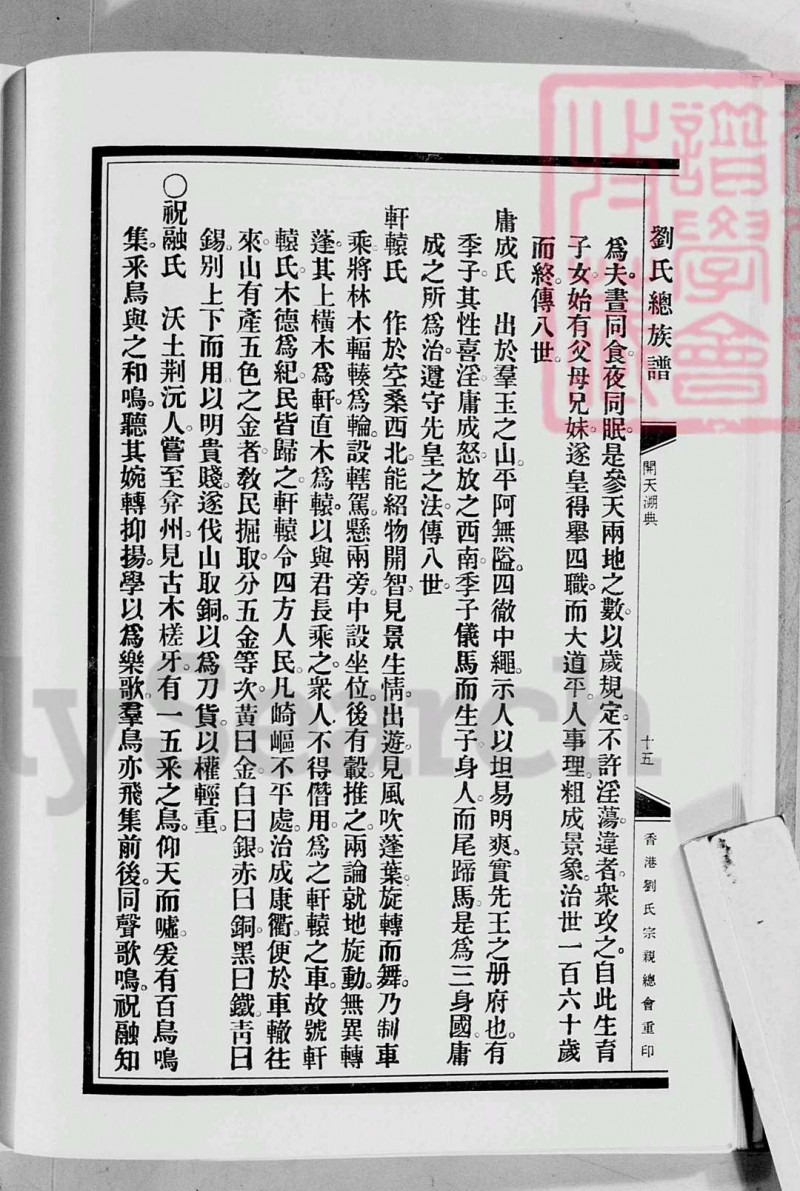 劉氏總族譜
開天溯典
十五
香港劉氏宗親總會重印
爲夫晝同食夜同眠是參天兩地之數以歲規定不許淫蕩違者衆攻之自此生育
子女始有父母兄妹遂皇得舉四職而大道平人事理粗成景象治世一百六十歲
而終傳八世
庸成氏　出於羣玉之山平阿無隘四徹中繩示人以坦易明爽實先王之册府也有
季子其性喜淫庸成怒放之西南季子儀馬而生子身人而尾蹄馬是爲三身國庸
成之所爲治遵守先皇之法傳八世
軒轅氏　作於空桑西北能紹物開智見景生情出遊見風吹蓬葉旋轉而舞乃制車
乘將林木輻輳爲輪設轄駕懸兩旁中設坐位後有轂推之兩論就地旋動無異轉
蓬其上橫木爲軒直木爲轅以與君長乘之衆人不得僭用爲之軒轅之車故號軒
轅氏木德爲紀民皆歸之軒轅令四方人民凡崎嶇不平處治成康衢便於車轍往
來山有產五色之金者敎民掘取分五金等次黃曰金白曰銀赤曰銅黑曰鐵靑曰
錫別上下而用以明貴賤遂伐山取銅以爲刀貨以權輕重
○祝融氏　沃土荆沅人嘗至弇州見古木槎牙有一五采之鳥仰天而噓爰有百鳥鳴
集采鳥與之和鳴聽其婉轉抑揚學以爲樂歌羣鳥亦飛集前後同聲歌鳴祝融知
譜學會
lySearch